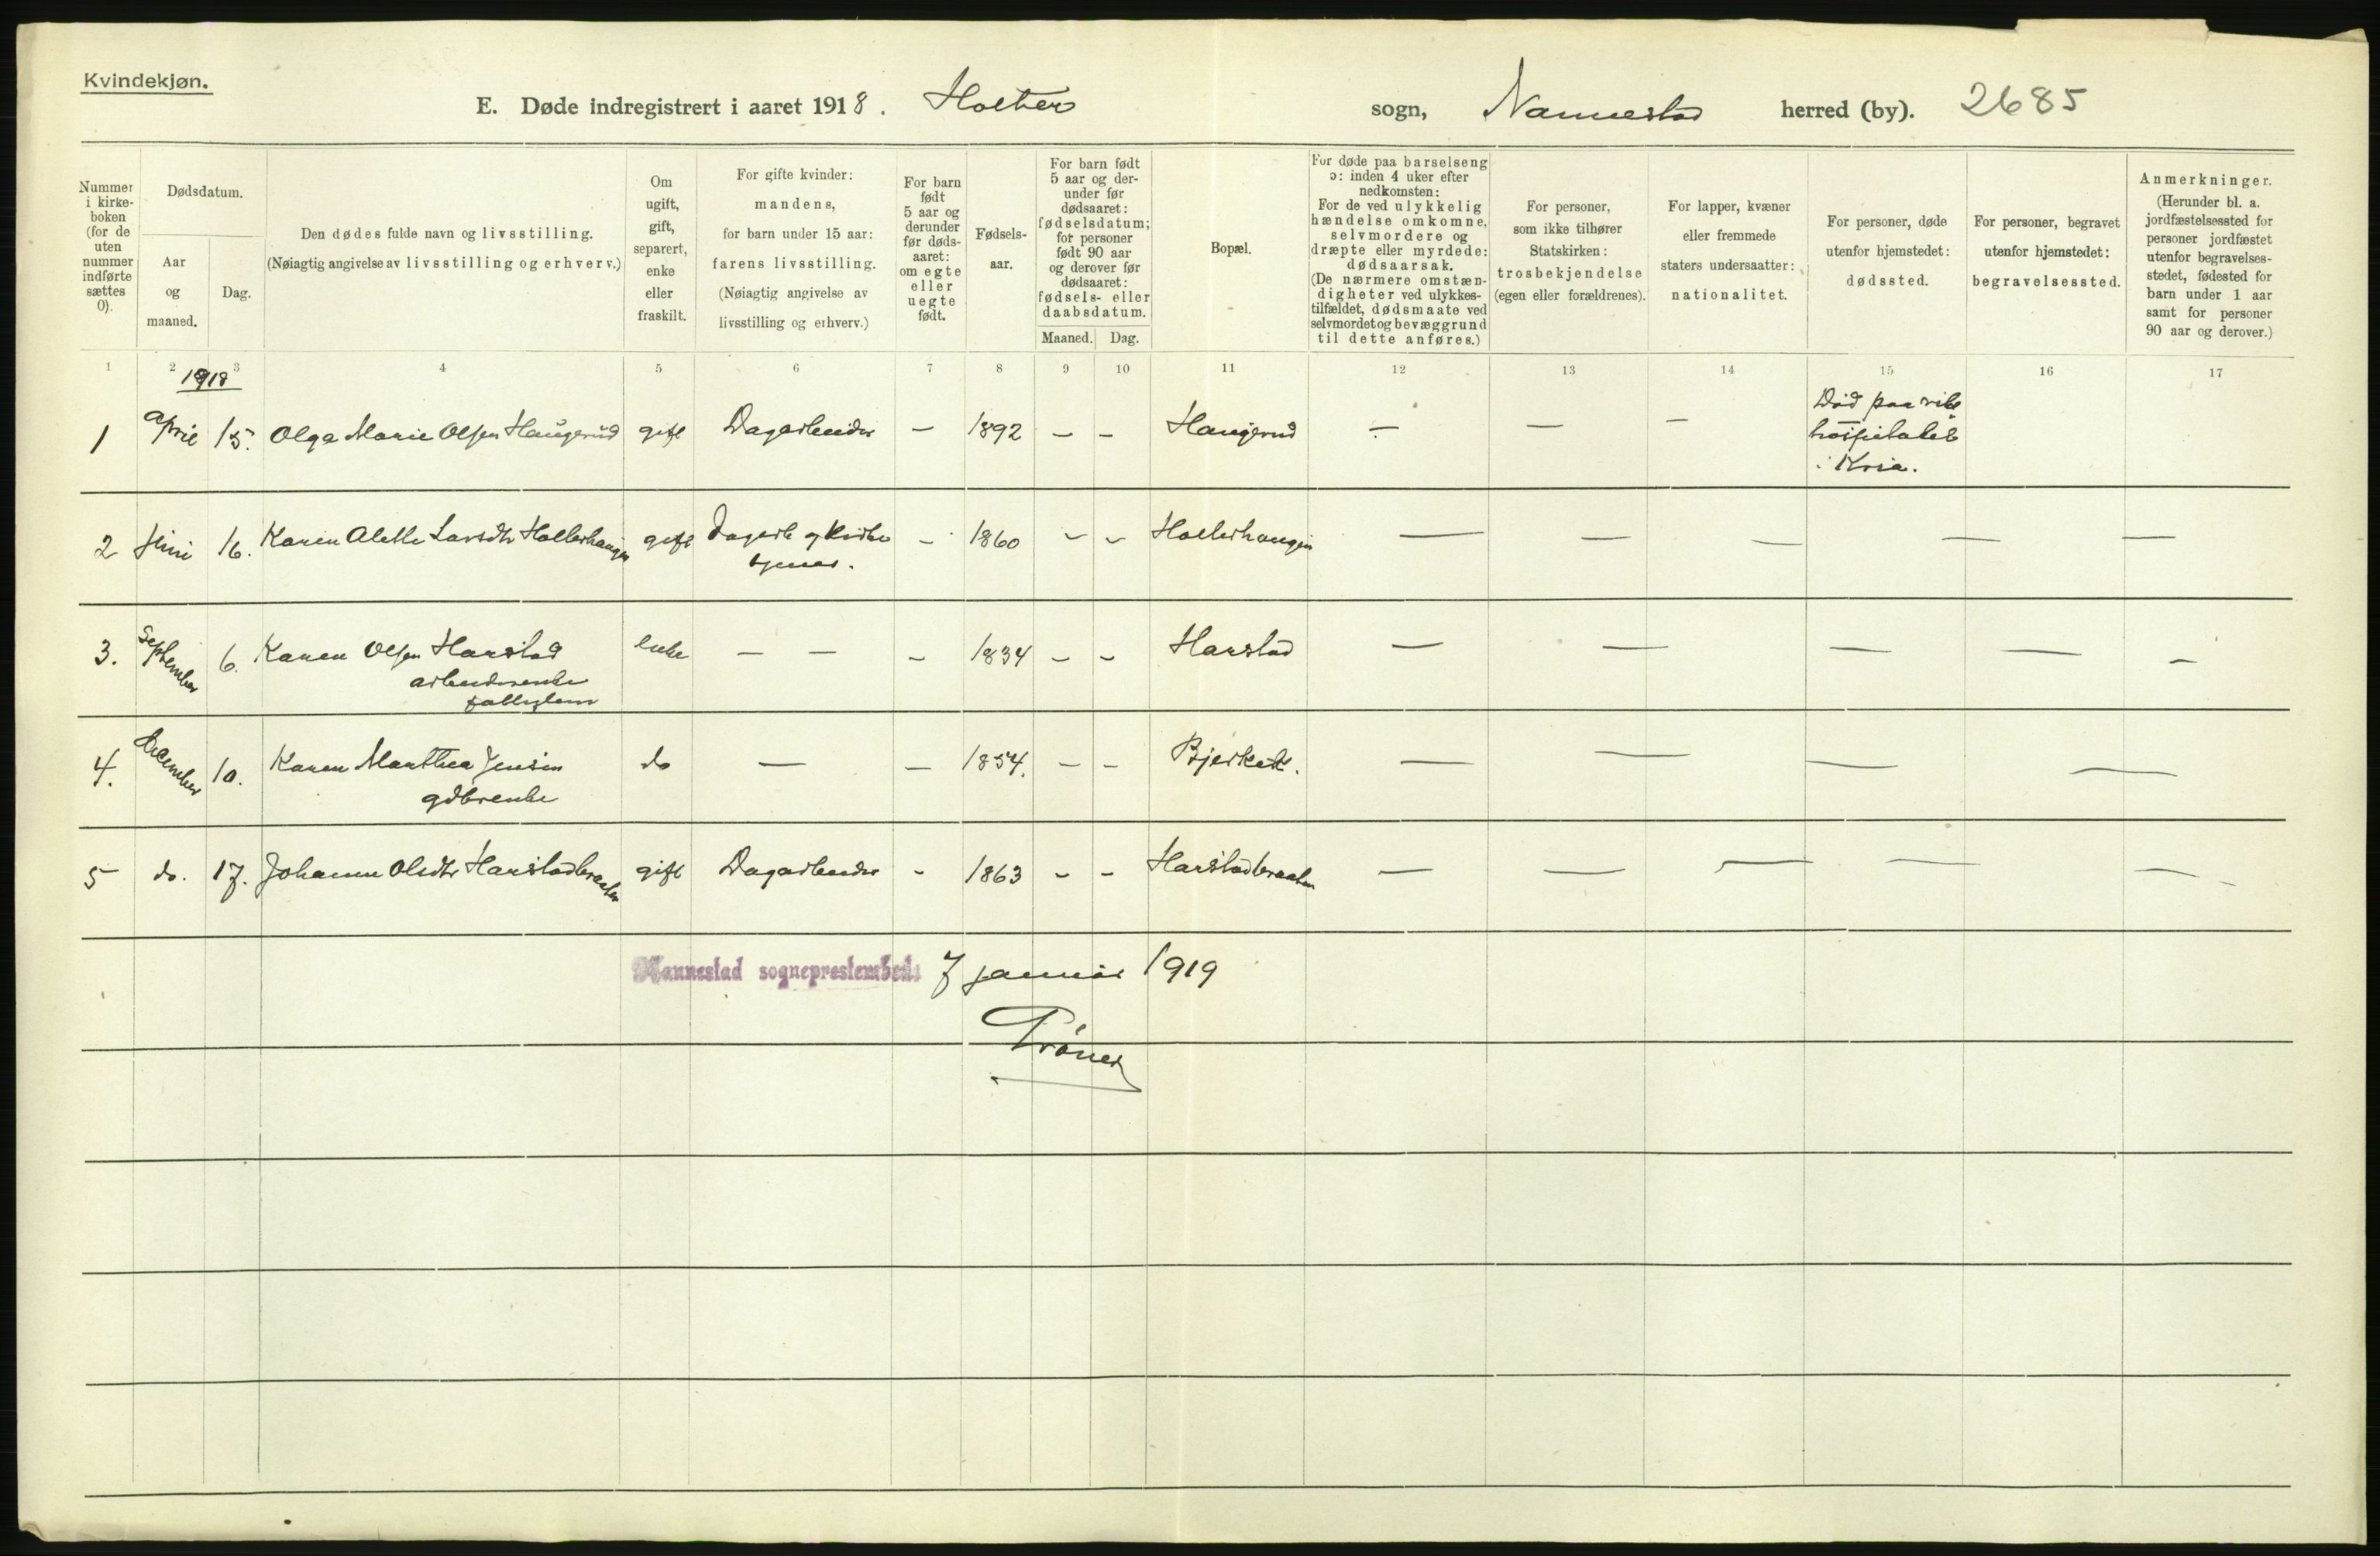 Kvindekjøn.
E. Døde indregistrert i aaret 1918. Holter sogn, Nannestad herred (by). 2685
Nummer i kirkeboken (for de uten nummer indførte sættes 0).
Dødsdatum.
Aar og maaned.
Dag.
Den dødes fulde navn og livsstilling.
(Nøiagtig angivelse av livsstilling og erhverv.)
Om ugift, gift, separert, enke eller fraskilt.
For gifte kvinder:
mandens,
for barn under 15 aar:
farens livsstilling.
(Nøiagtig angivelse av
livsstilling og erhverv.)
For barn født 5 aar og derunder før dødsaaret: om egte eller uegte født.
Fødselsaar.
For barn født 5 aar og derunder før dødsaaret: fødselsdatum; for personer født 90 aar og derover før dødsaaret: fødsels- eller daabsdatum.
Maaned. Dag.
Bopæl.
For døde paa barselseng
ɔ: inden 4 uker efter
nedkomsten:
For de ved ulykkelig
hændelse omkomne,
selvmordere og
dræpte eller myrdede:
dødsaarsak.
(De nærmere omstæn-
digheter ved ulykkes-
tilfældet, dødsmaate ved
selvmordet og bevæggrund
til dette anføres.)
For personer,
som ikke tilhører
Statskirken:
trosbekjendelse
(egen eller forældrenes).
For lapper, kvæner
eller fremmede
staters undersaatter:
nationalitet.
For personer, døde
utenfor hjemstedet:
dødssted.
For personer, begravet
utenfor hjemstedet:
begravelsessted.
Anmerkninger.
(Herunder bl. a.
jordfæstelsessted for
personer jordfæstet
utenfor begravelses-
stedet, fødested for
barn under 1 aar
samt for personer
90 aar og derover.)
1 2 3 4 5 6 7 8 9 10 11 12 13 14 15 16 17
1918
1 April 15. Olga Marie Olsen Haugerud gift Dagarbeider – 1892 – – Haugerud – – – Død paa riks
hospitalet
i Kria.
2 Juni 16. Karen Alette Larsdtr Holterhaugen gift Dagarb og kirke
tjener. – 1860 – – Holterhaugen – – – – –
3. September 6. Karen Olsen Harstad enke – – – 1834 – – Harstad – – – – –
arbeiderenke
fattiglem
4. December 10. Karen Marthea Jensen do – – 1854. – – Bjerkek. – – – –
gdbrenke
5 do. 17. Johanne Olsdtr Harstadbraaten gift Dagarbeider – 1863 – – Harstadbraaten – – – – – –
Nannestad sogneprestembede 7 januar 1919